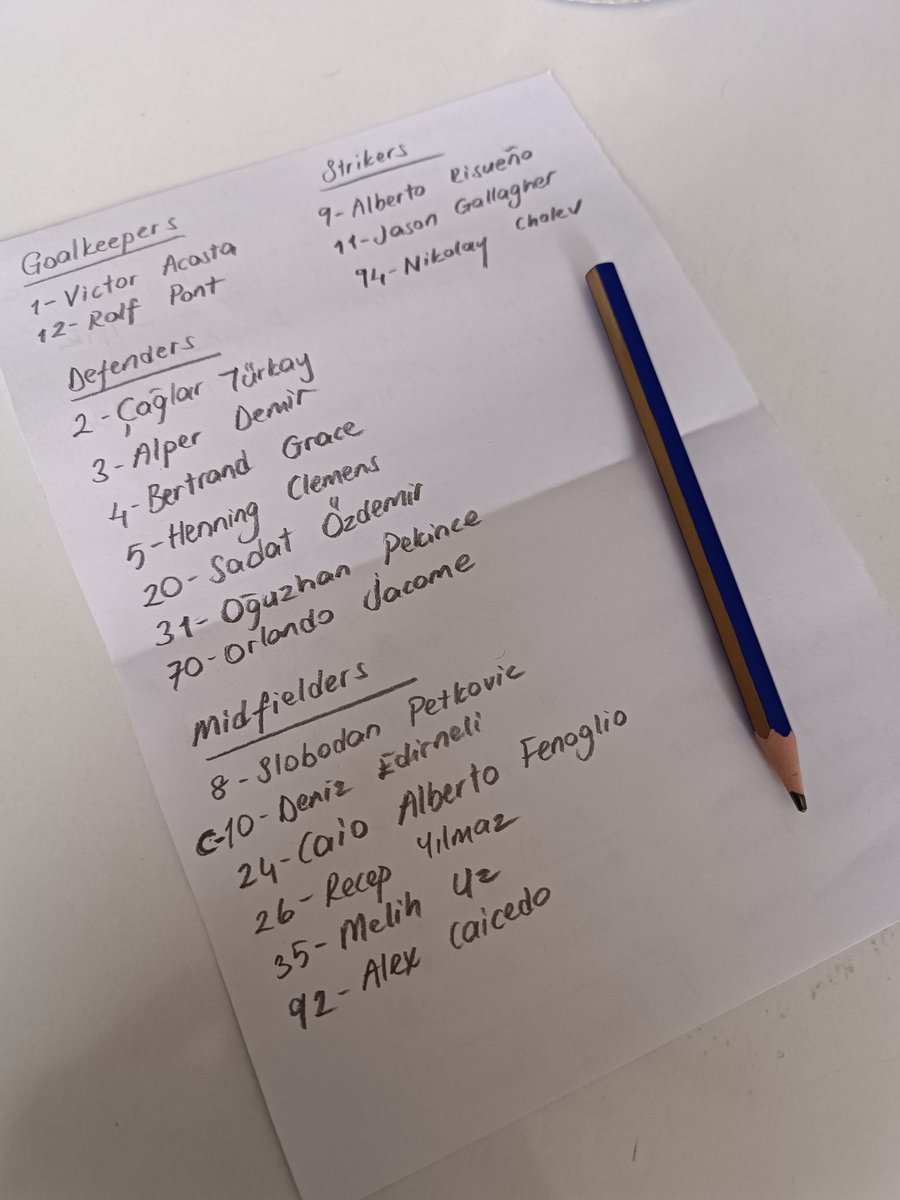 Goalkeepers
1-Victor Acosta
12-Rolf Pont
Defenders
2-Çağlar Türkay
3-Alper Demir
4-Bertrand Grace
5-Henning Clemens
20-Sadat Özdemir
31-Oğuzhan Pekince
70-Orlando Jacome
Midfielders
8-Slobodan Petkovic
C-10-Deniz Edirneli
24-Caio Alberto Fenoglio
26-Recep Yılmaz
35-Melih Uz
92-Alex Caicedo
Strikers
9-Alberto Risueño
11-Jason Gallagher
94-Nikolay Cholev